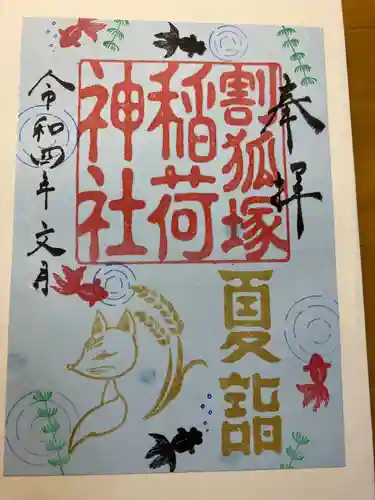 奉拝
割狐塚
稲荷
神社
夏詣
令和四年 文月